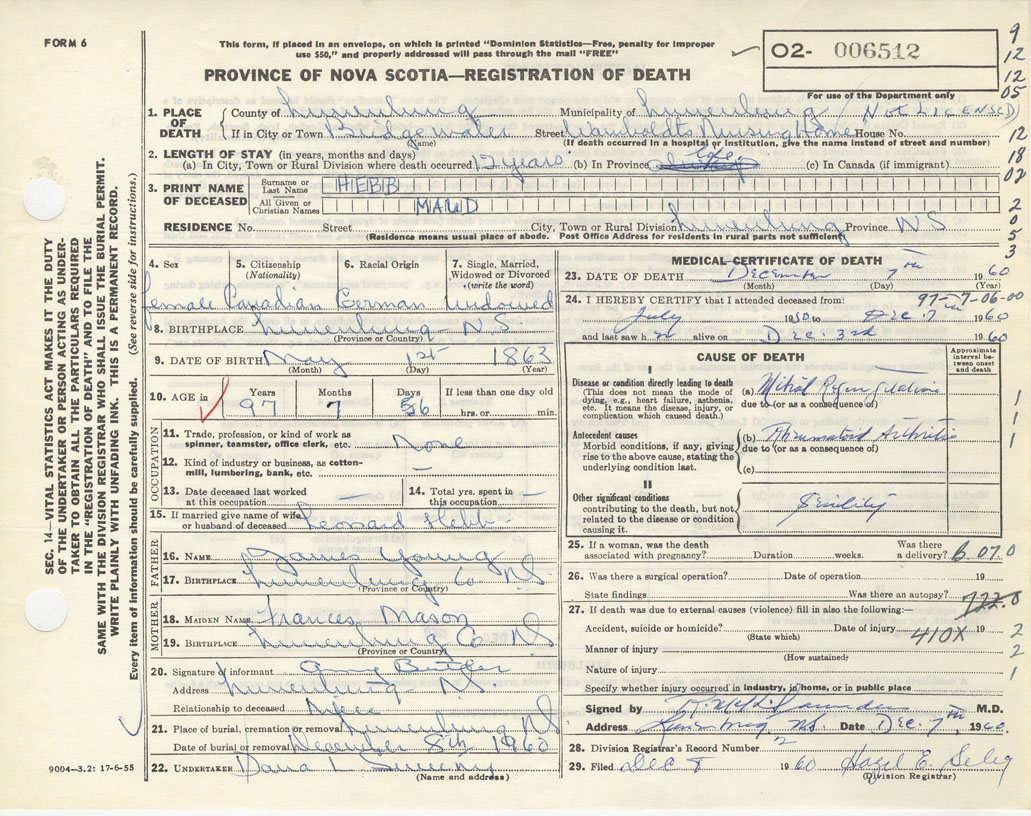 FORM 6
This form, if placed in an envelope, on which is printed "Dominion Statistics—Free, penalty for improper
use $50," and properly addressed will pass through the mail "FREE"
O2- 006512
For use of the Department only
PROVINCE OF NOVA SCOTIA—REGISTRATION OF DEATH
9
12
12
05
12
18
02
2
0
5
3
1. PLACE OF DEATH County of Lunenburg Municipality of Lunenburg Not Licensed
If in City or Town Bridgewater Street Wamboldts Nursing Home House No.
(Name) (If death occurred in a hospital or institution, give the name instead of street and number)
2. LENGTH OF STAY (in years, months and days)
(a) In City, Town or Rural Division where death occurred 2 years (b) In Province Life (c) In Canada (if immigrant)
3. PRINT NAME OF DECEASED
Surname or Last Name HEBB
All Given or Christian Names MAUD
RESIDENCE No. Street City, Town or Rural Division Lunenburg Province NS
(Residence means usual place of abode. Post Office Address for residents in rural parts not sufficient)
4. Sex 5. Citizenship (Nationality) 6. Racial Origin 7. Single, Married, Widowed or Divorced (write the word)
female Canadian German widowed
8. BIRTHPLACE Lunenburg - N.S.
(Province or Country)
9. DATE OF BIRTH May 1st 1863
(Month) (Day) (Year)
10. AGE in Years Months Days If less than one day old
97 7 6 hrs. or min.
OCCUPATION
11. Trade, profession, or kind of work as spinner, teamster, office clerk, etc. None
12. Kind of industry or business, as cotton-mill, lumbering, bank, etc. —
13. Date deceased last worked at this occupation — 14. Total yrs. spent in this occupation —
15. If married give name of wife or husband of deceased Leonard Hebb -
FATHER
16. NAME James Young
17. BIRTHPLACE Lunenburg Co NS.
(Province or Country)
MOTHER
18. MAIDEN NAME Frances Mason
19. BIRTHPLACE Lunenburg Co NS
(Province or Country)
20. Signature of informant Butler
Address Lunenburg - N.S.
Relationship to deceased Niece
21. Place of burial, cremation or removal Lunenburg NS
Date of burial or removal December 8th 1960
22. UNDERTAKER Dana L Sweeny
(Name and address)
MEDICAL CERTIFICATE OF DEATH
23. DATE OF DEATH December 7th 1960
(Month) (Day)
97-7-06-00
24. I HEREBY CERTIFY that I attended deceased from:
July 1950 to Dec. 7th 1960
and last saw h er alive on Dec. 3rd 1960
CAUSE OF DEATH
Approximate interval between onset and death
I
Disease or condition directly leading to death
(This does not mean the mode of dying, e.g., heart failure, asthenia, etc. It means the disease, injury, or complication which caused death.)
(a) Mitral Regurgitation
due to (or as a consequence of)
Antecedent causes
Morbid conditions, if any, giving rise to the above cause, stating the underlying condition last.
(b) Rheumatoid Arthritis
due to (or as a consequence of)
(c)
II
Other significant conditions
contributing to the death, but not related to the disease or condition causing it.
Senility
1
1
1
25. If a woman, was the death associated with pregnancy? Duration weeks. Was there a delivery? B. 07.0
26. Was there a surgical operation? Date of operation 19
State findings Was there an autopsy? 722.0
27. If death was due to external causes (violence) fill in also the following:—
Accident, suicide or homicide? Date of injury 19
(State which) 410X
Manner of injury
(How sustained)
Nature of injury
2
2
1
Specify whether injury occurred in industry, in home, or in public place
Signed by Saunders M.D.
Address Lunenburg, N.S. Date Dec. 7th, 1960.
28. Division Registrar's Record Number
29. Filed Dec 1960 Hazel E. Selig
(Division Registrar)
SEC. 14—VITAL STATISTICS ACT MAKES IT THE DUTY
OF THE UNDERTAKER OR PERSON ACTING AS UNDER-
TAKER TO OBTAIN ALL THE PARTICULARS REQUIRED
IN THE "REGISTRATION OF DEATH" AND TO FILE THE
SAME WITH THE DIVISION REGISTRAR WHO SHALL ISSUE THE BURIAL PERMIT.
WRITE PLAINLY WITH UNFADING INK. THIS IS A PERMANENT RECORD.
Every item of information should be carefully supplied. (See reverse side for instructions.)
9004-3.2: 17-6-55